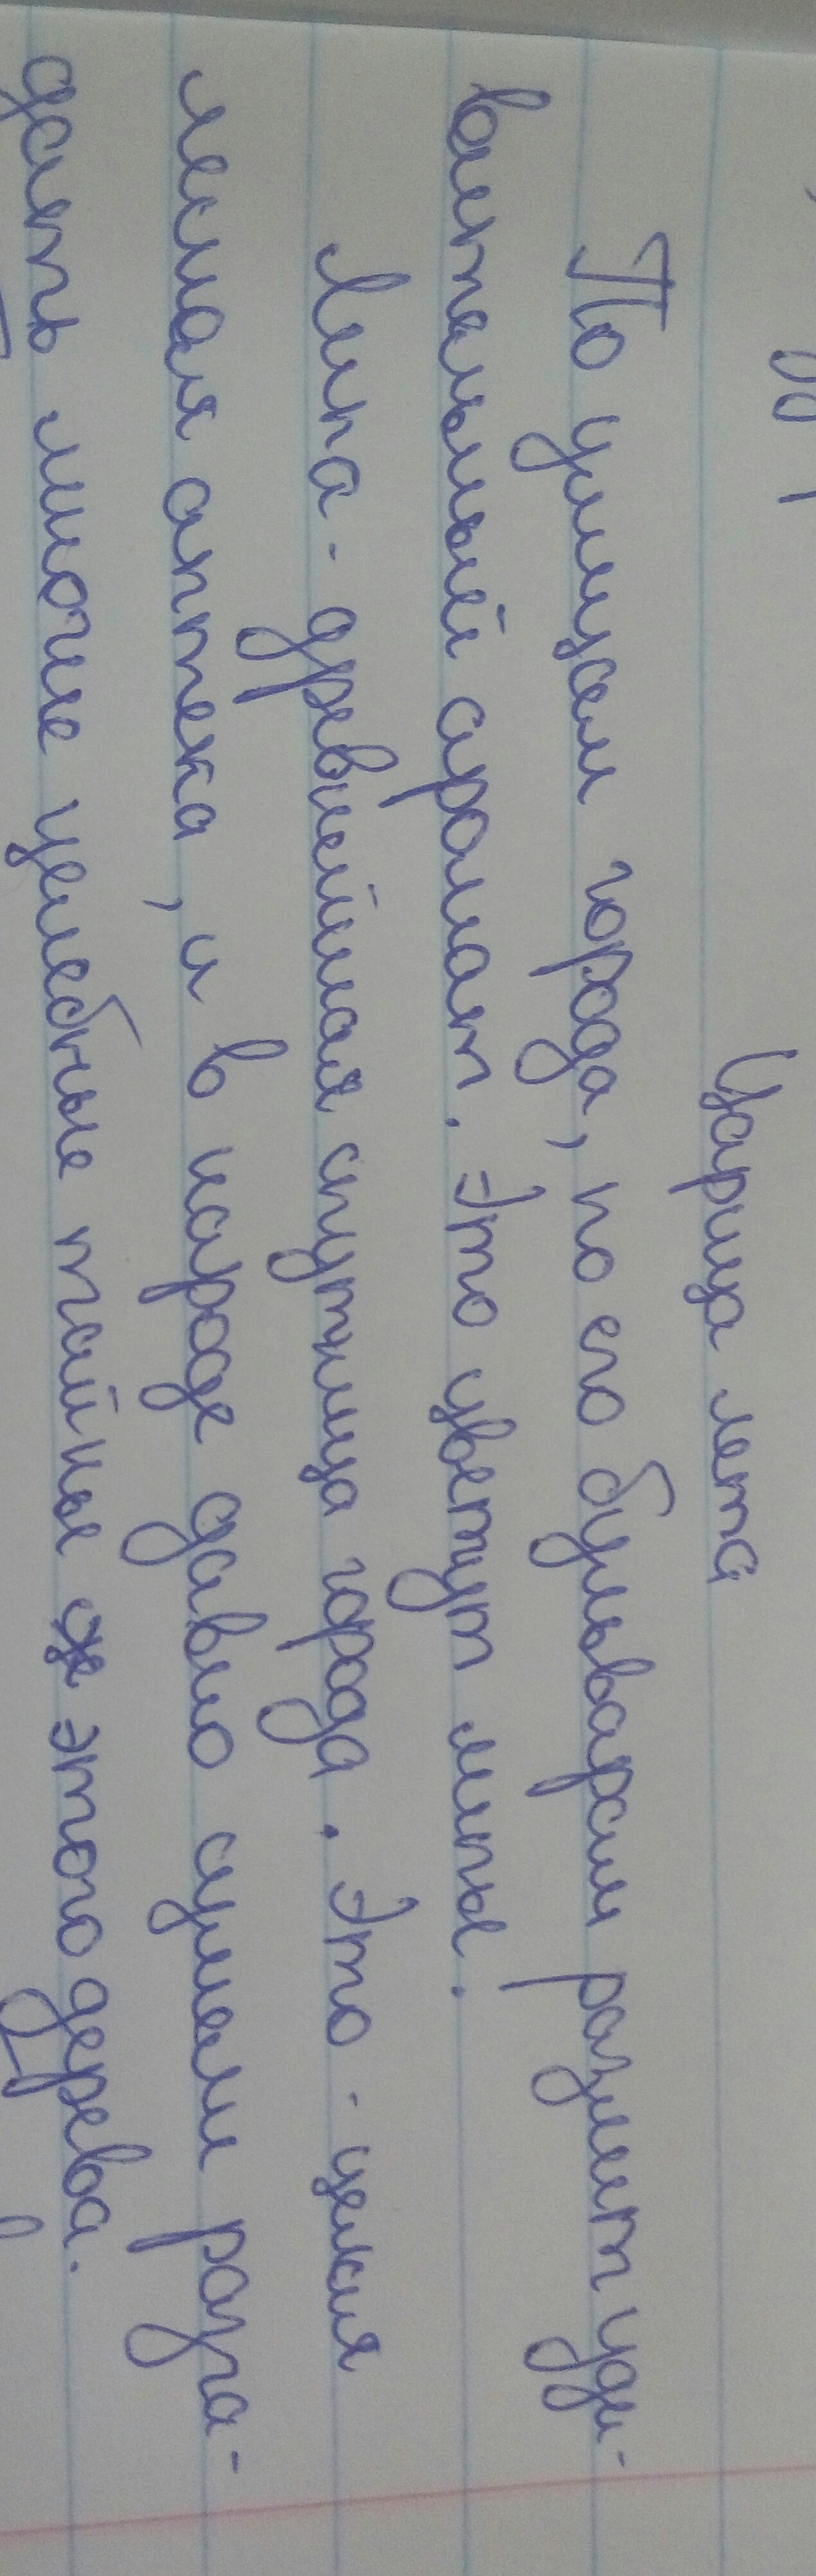 Царица лета
По улицам города, по его бульварам разлит уди-
вительный аромат. Это цветут липы.
Липа - древнейшая спутница города. Это - целая
лесная аптека, и в народе давно сумели разга-
дать многие целебные тайны этого дерева.